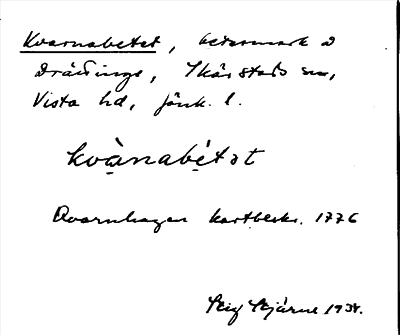 Kvarnabetet, betesmark å
Drättinge, Skärstads sn,
Vista hd, Jönk. l.
kvànabétat
Qvarnhagen kartbeskr. 1776
Stig Stjärne 193